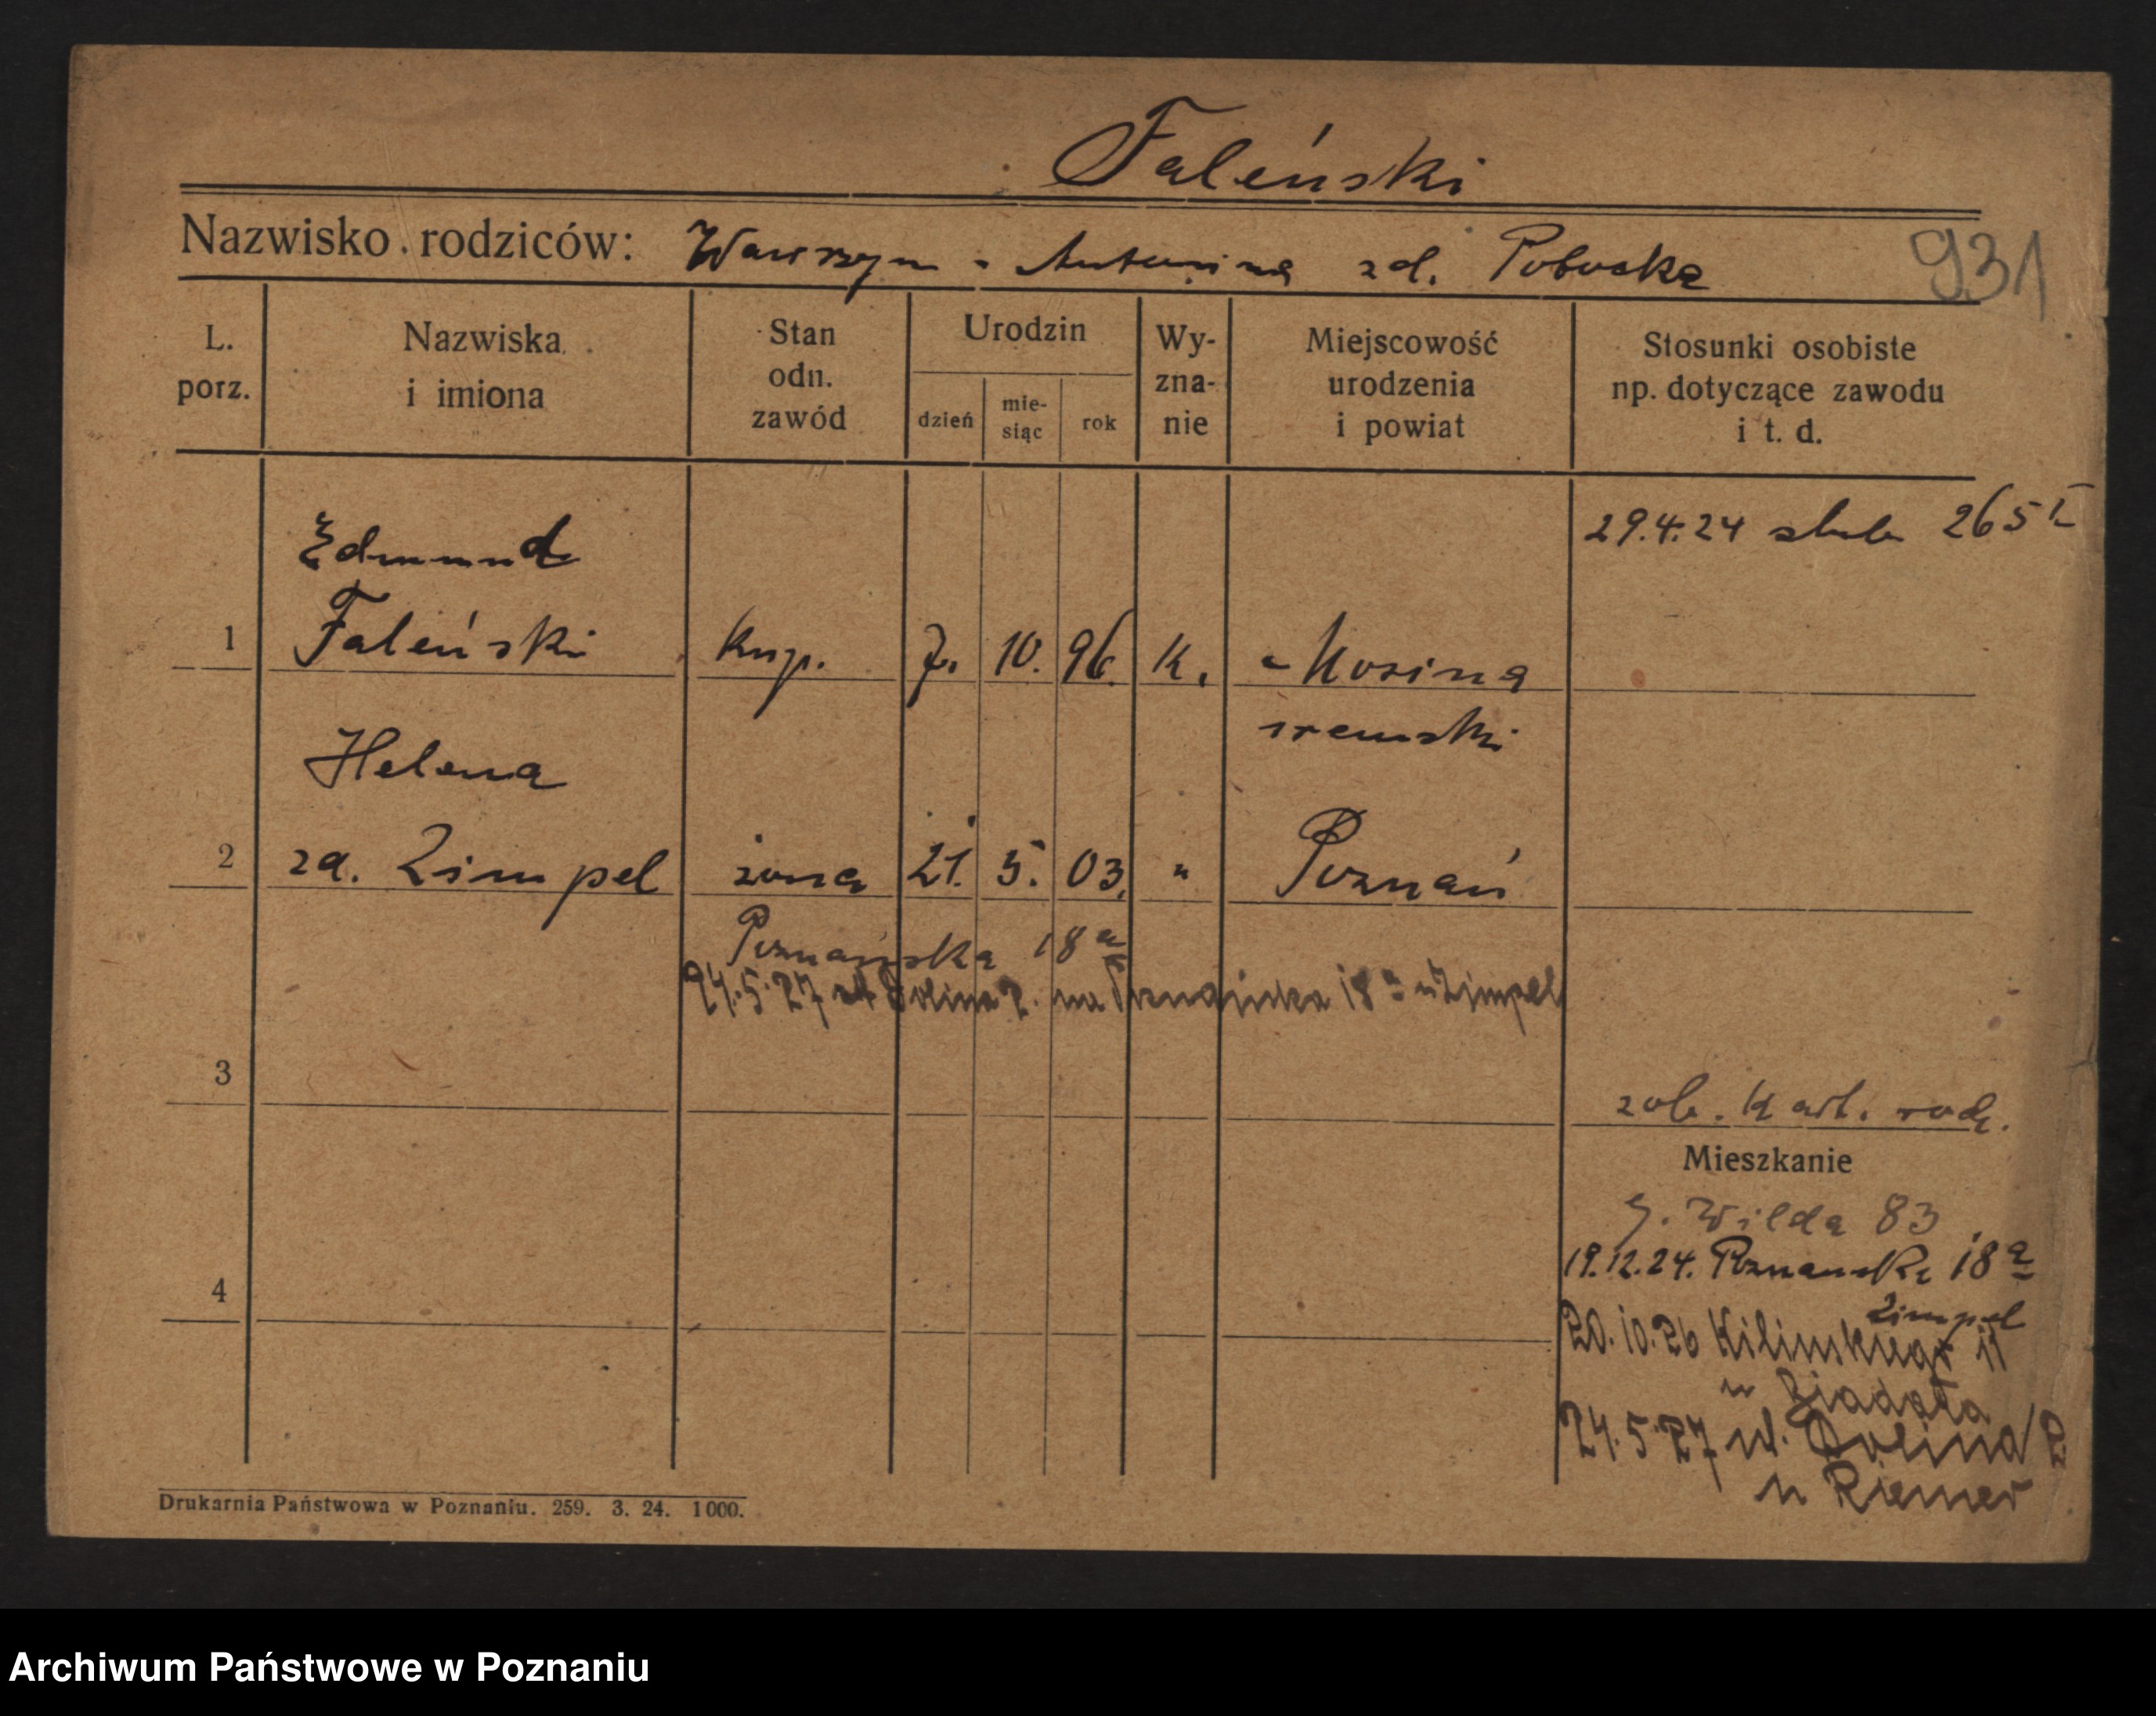 Faleński
Nazwisko rodziców: Wawrzyn - Antonina zd. Pobocka
931
L. porz.
Nazwiska i imiona
Stan odn. zawód
Urodzin
dzień
mie-siąc
rok
Wy-zna-nie
Miejscowość urodzenia i powiat
Stosunki osobiste np. dotyczące zawodu i t. d.
29.4.24 ślub 265
Edmund
1 Faleński kup. 7. 10. 96. k. Mosina
śremski
Helena
2 zd. Zimpel żona 21. 5. 03. " Poznań
Poznańska 18a
24.5.27 Dolina 2. na Poznańska 18a u Zimpel
3
zob. kart. rodz.
Mieszkanie
G. Wilda 83
19.12.24. Poznańska 18a
Zimpel
4
20.10.26 Kilińskiego 11
u Biadała
24.5.27 ul. Dolina 2
u Riemer
Drukarnia Państwowa w Poznaniu. 259. 3. 24. 1000.
Archiwum Państwowe w Poznaniu